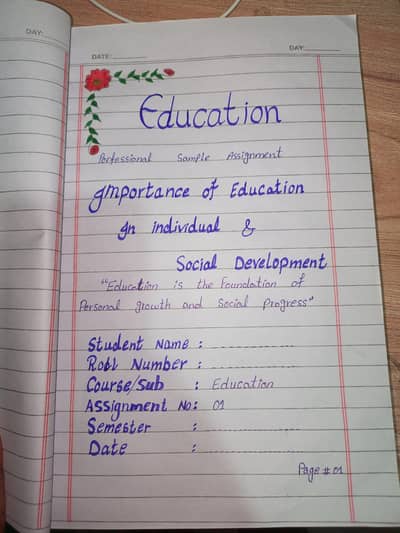 DAY:
DATE:
DAY:
Education
Porfessional Sample Assignment
Importance of Education
In individual &
Social Development
"Education is the Foundation of
Personal growth and Social Progress"
Student Name :
Roll Number :
Course/Sub : Education
Assignment No: 01
Semester :
Date :
Page # 01